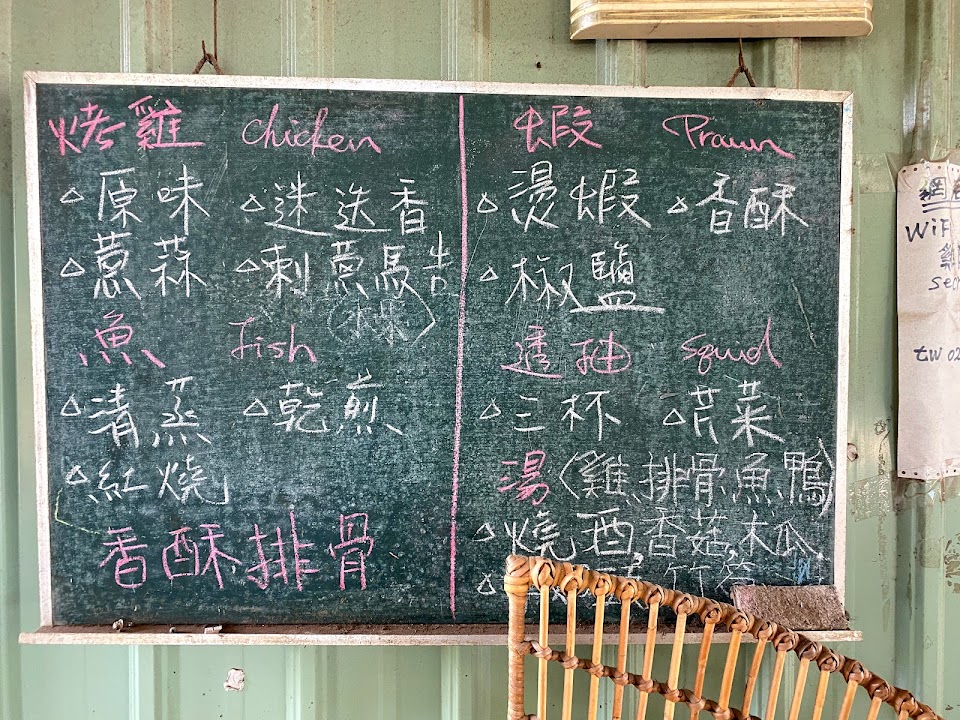 烤雞 chicken
△原味 △迷迭香
△蔥蒜 △刺蔥馬告
魚 Fish
△清蒸 △乾煎
△紅燒
香酥排骨
蝦 Prawn
△燙蝦 △香酥
△椒鹽
透抽 squid
△三杯 △芹菜
湯(雞,排骨魚,鴨)
△燒酒,香菇,木瓜,
WiF
tw 02